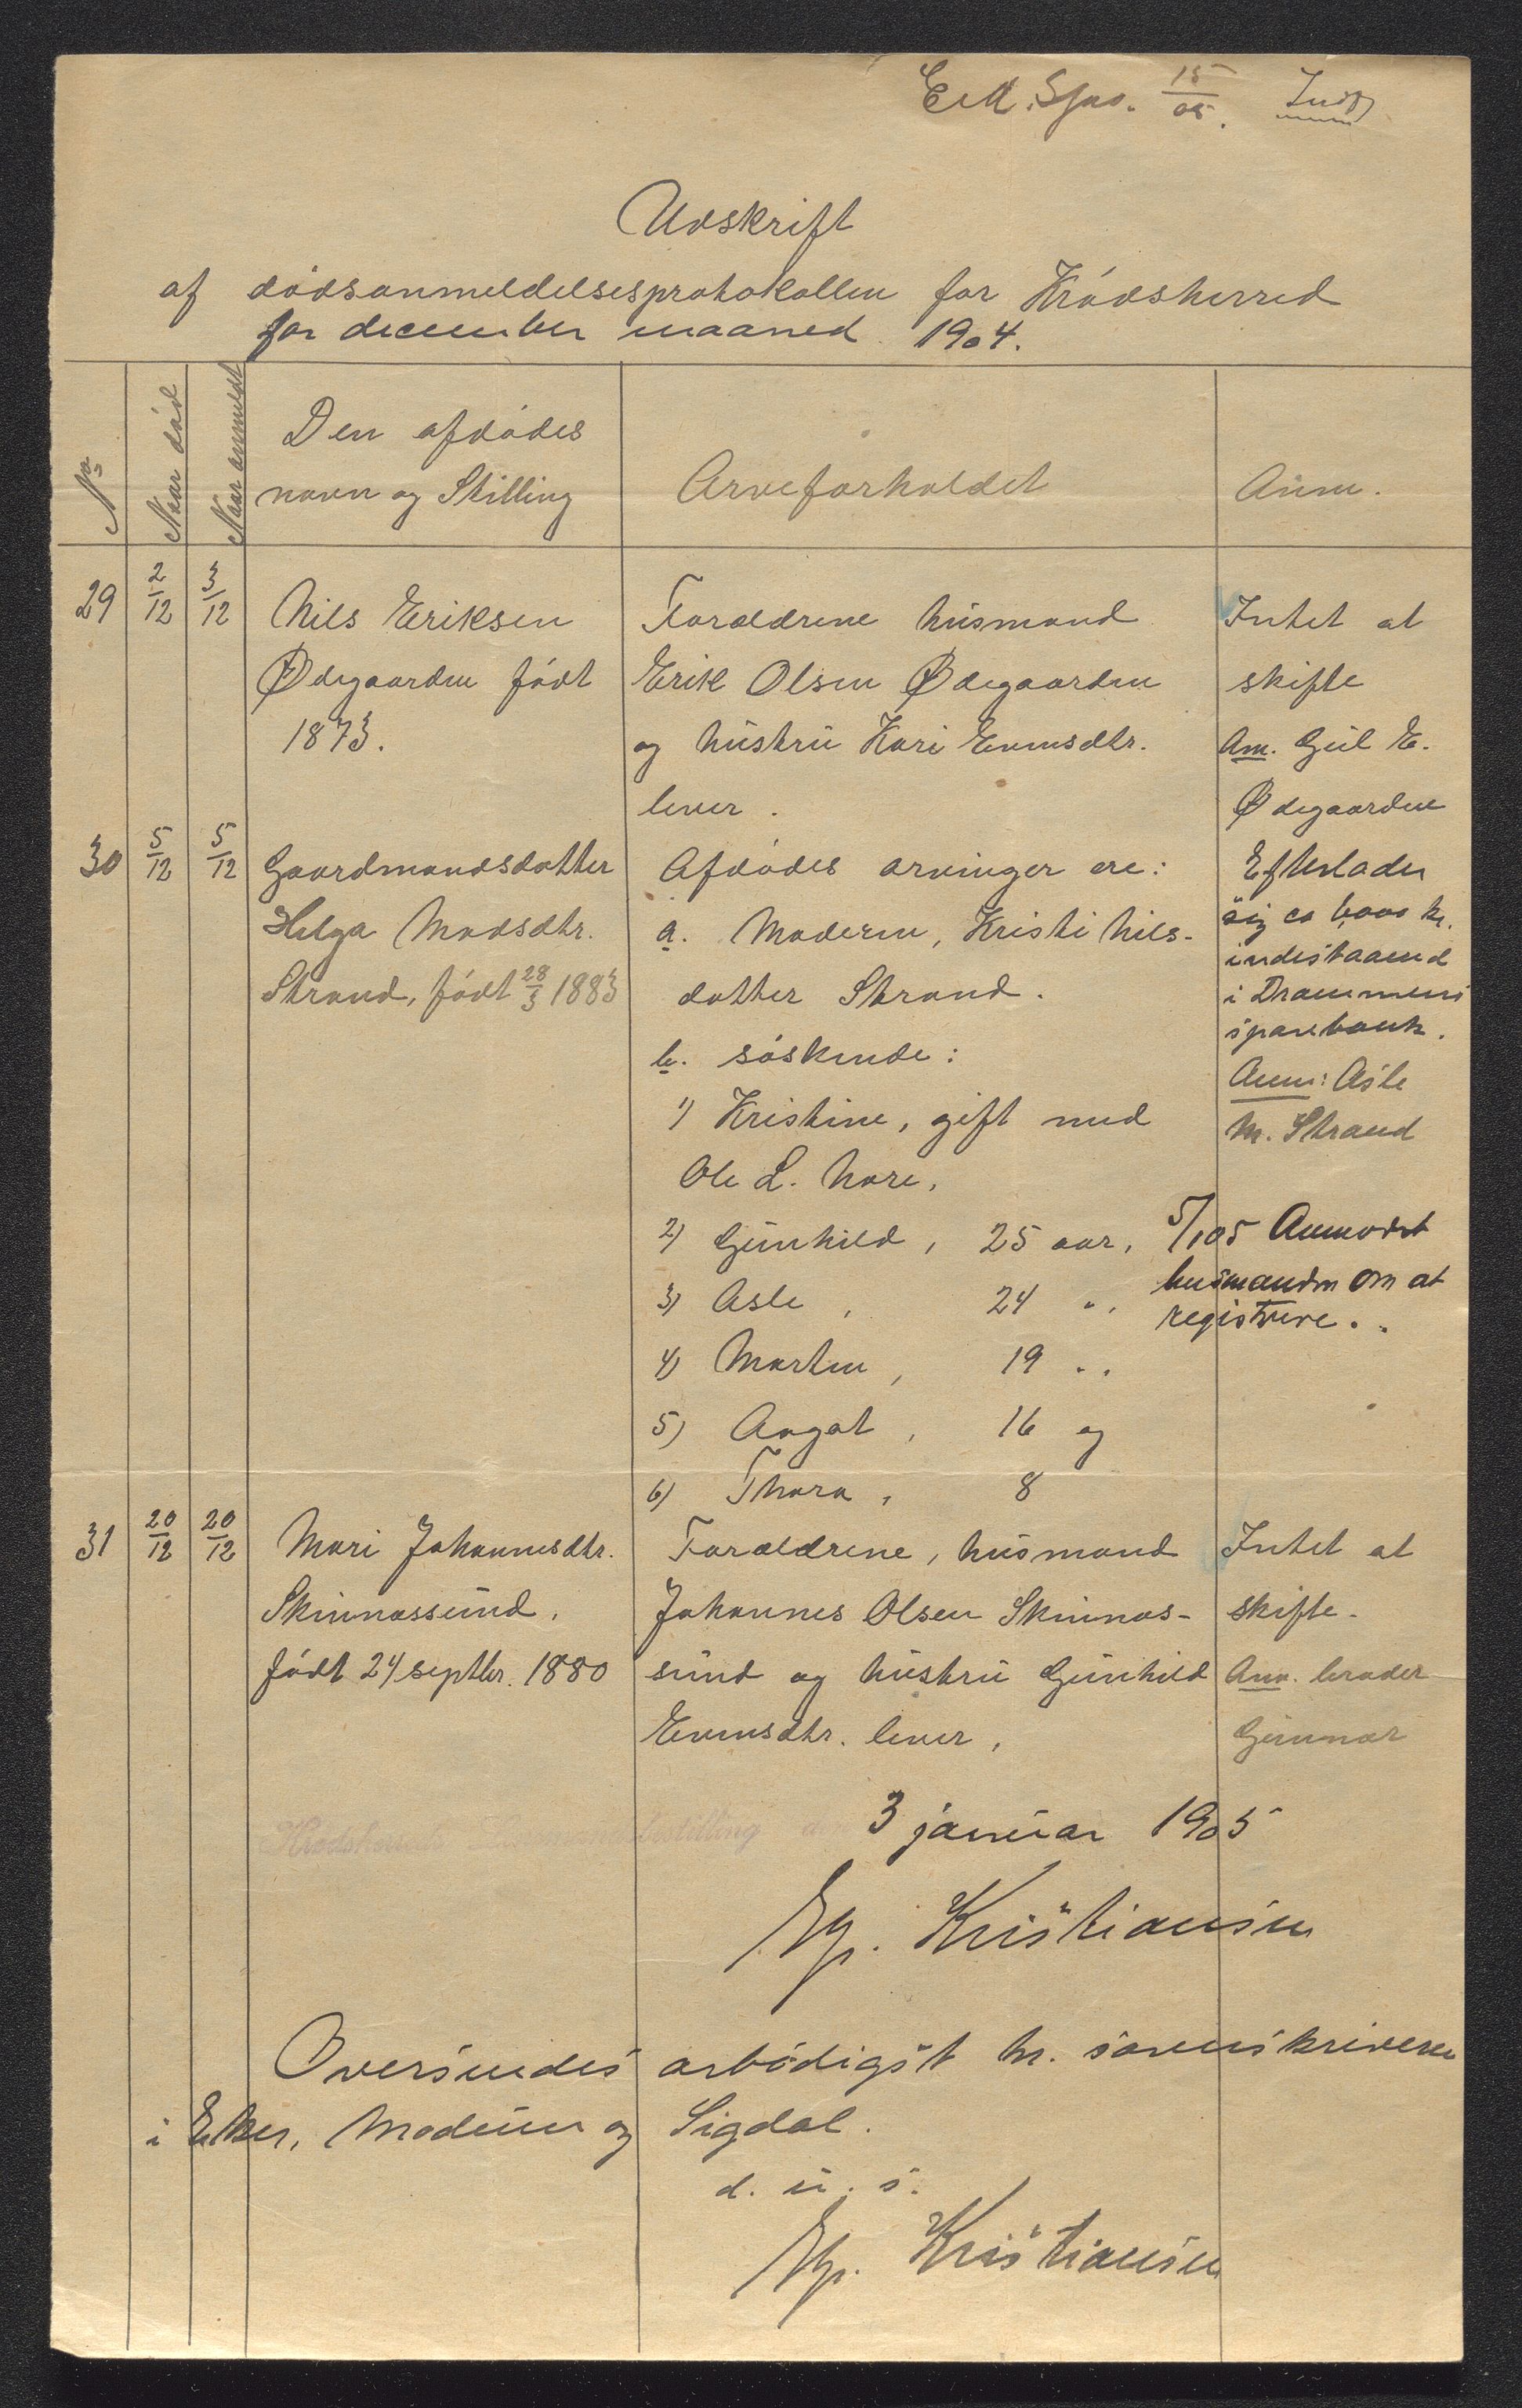 E.M.Sfns. 15/05.
Udskrift
af dødsanmeldelsesprotokollen for Krødsherred
for december maaned 1904.
No
Naar død
Naar anmeldt
Den afdødes
navn og Stilling
Arveforholdet
Anm.
29 2/12 3/12
Nils Eriksen
Ødegaarden født
1873.
Forældrene husmand
Erik Olsen Ødegaarden
og hustru Kari Evensdtr.
lever.
Intet at
skifte
Anm. Gul E.
Ødegaarden
30 5/12 5/12
Gaardmandsdatter
Helga Madsdtr.
Strand, født 28/3 1883
Afdødes arvinger ere:
a. Moderen, Kristi Nils-
datter Strand.
b. søskende:
1) Kristine, gift med
Ole L. Nare,
2) Gunhild, 25 aar,
3) Asle, 24 ",
4) Marten, 19 ",
5) Avgot, 16 og
6) Thora, 8
Efterlader
sig ca 6000 kr.
indestaaend
i Drammens
sparebank.
Anm: Asle
M. Strand
5/1 05 Anmodet
lensmanden om at
registrere.
31 20/12 20/12
Mari Johannesdtr.
Skinnessund,
født 24 septbr. 1880
Forældrene, husmand
Johannes Olsen Skinnes-
sund og hustru Gunhild
Evensdtr. lever,
Intet at
skifte.
Anm. broder
Gunnar
3 januar 1905
Kristiansen
Oversendes ærbødigst hr. sorenskriveren
i Eker, Modum og Sigdal.
d. u. s.
Kristiansen